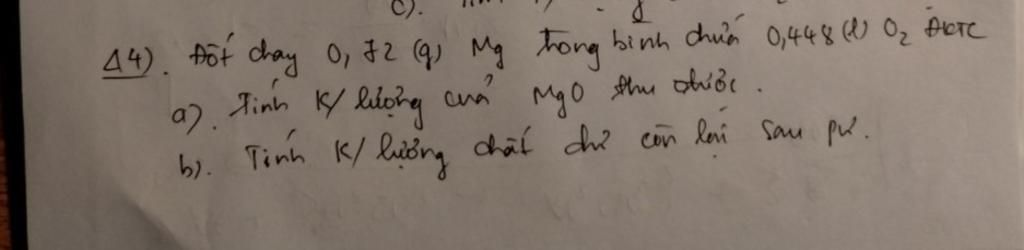 c).
Δ4). Đốt cháy 0,72 (g) Mg trong bình chứa 0,448 (l) O2 ĐKTC
a). Tính K/lượng của MgO thu được.
b). Tính K/lượng chất dư còn lại sau pư.